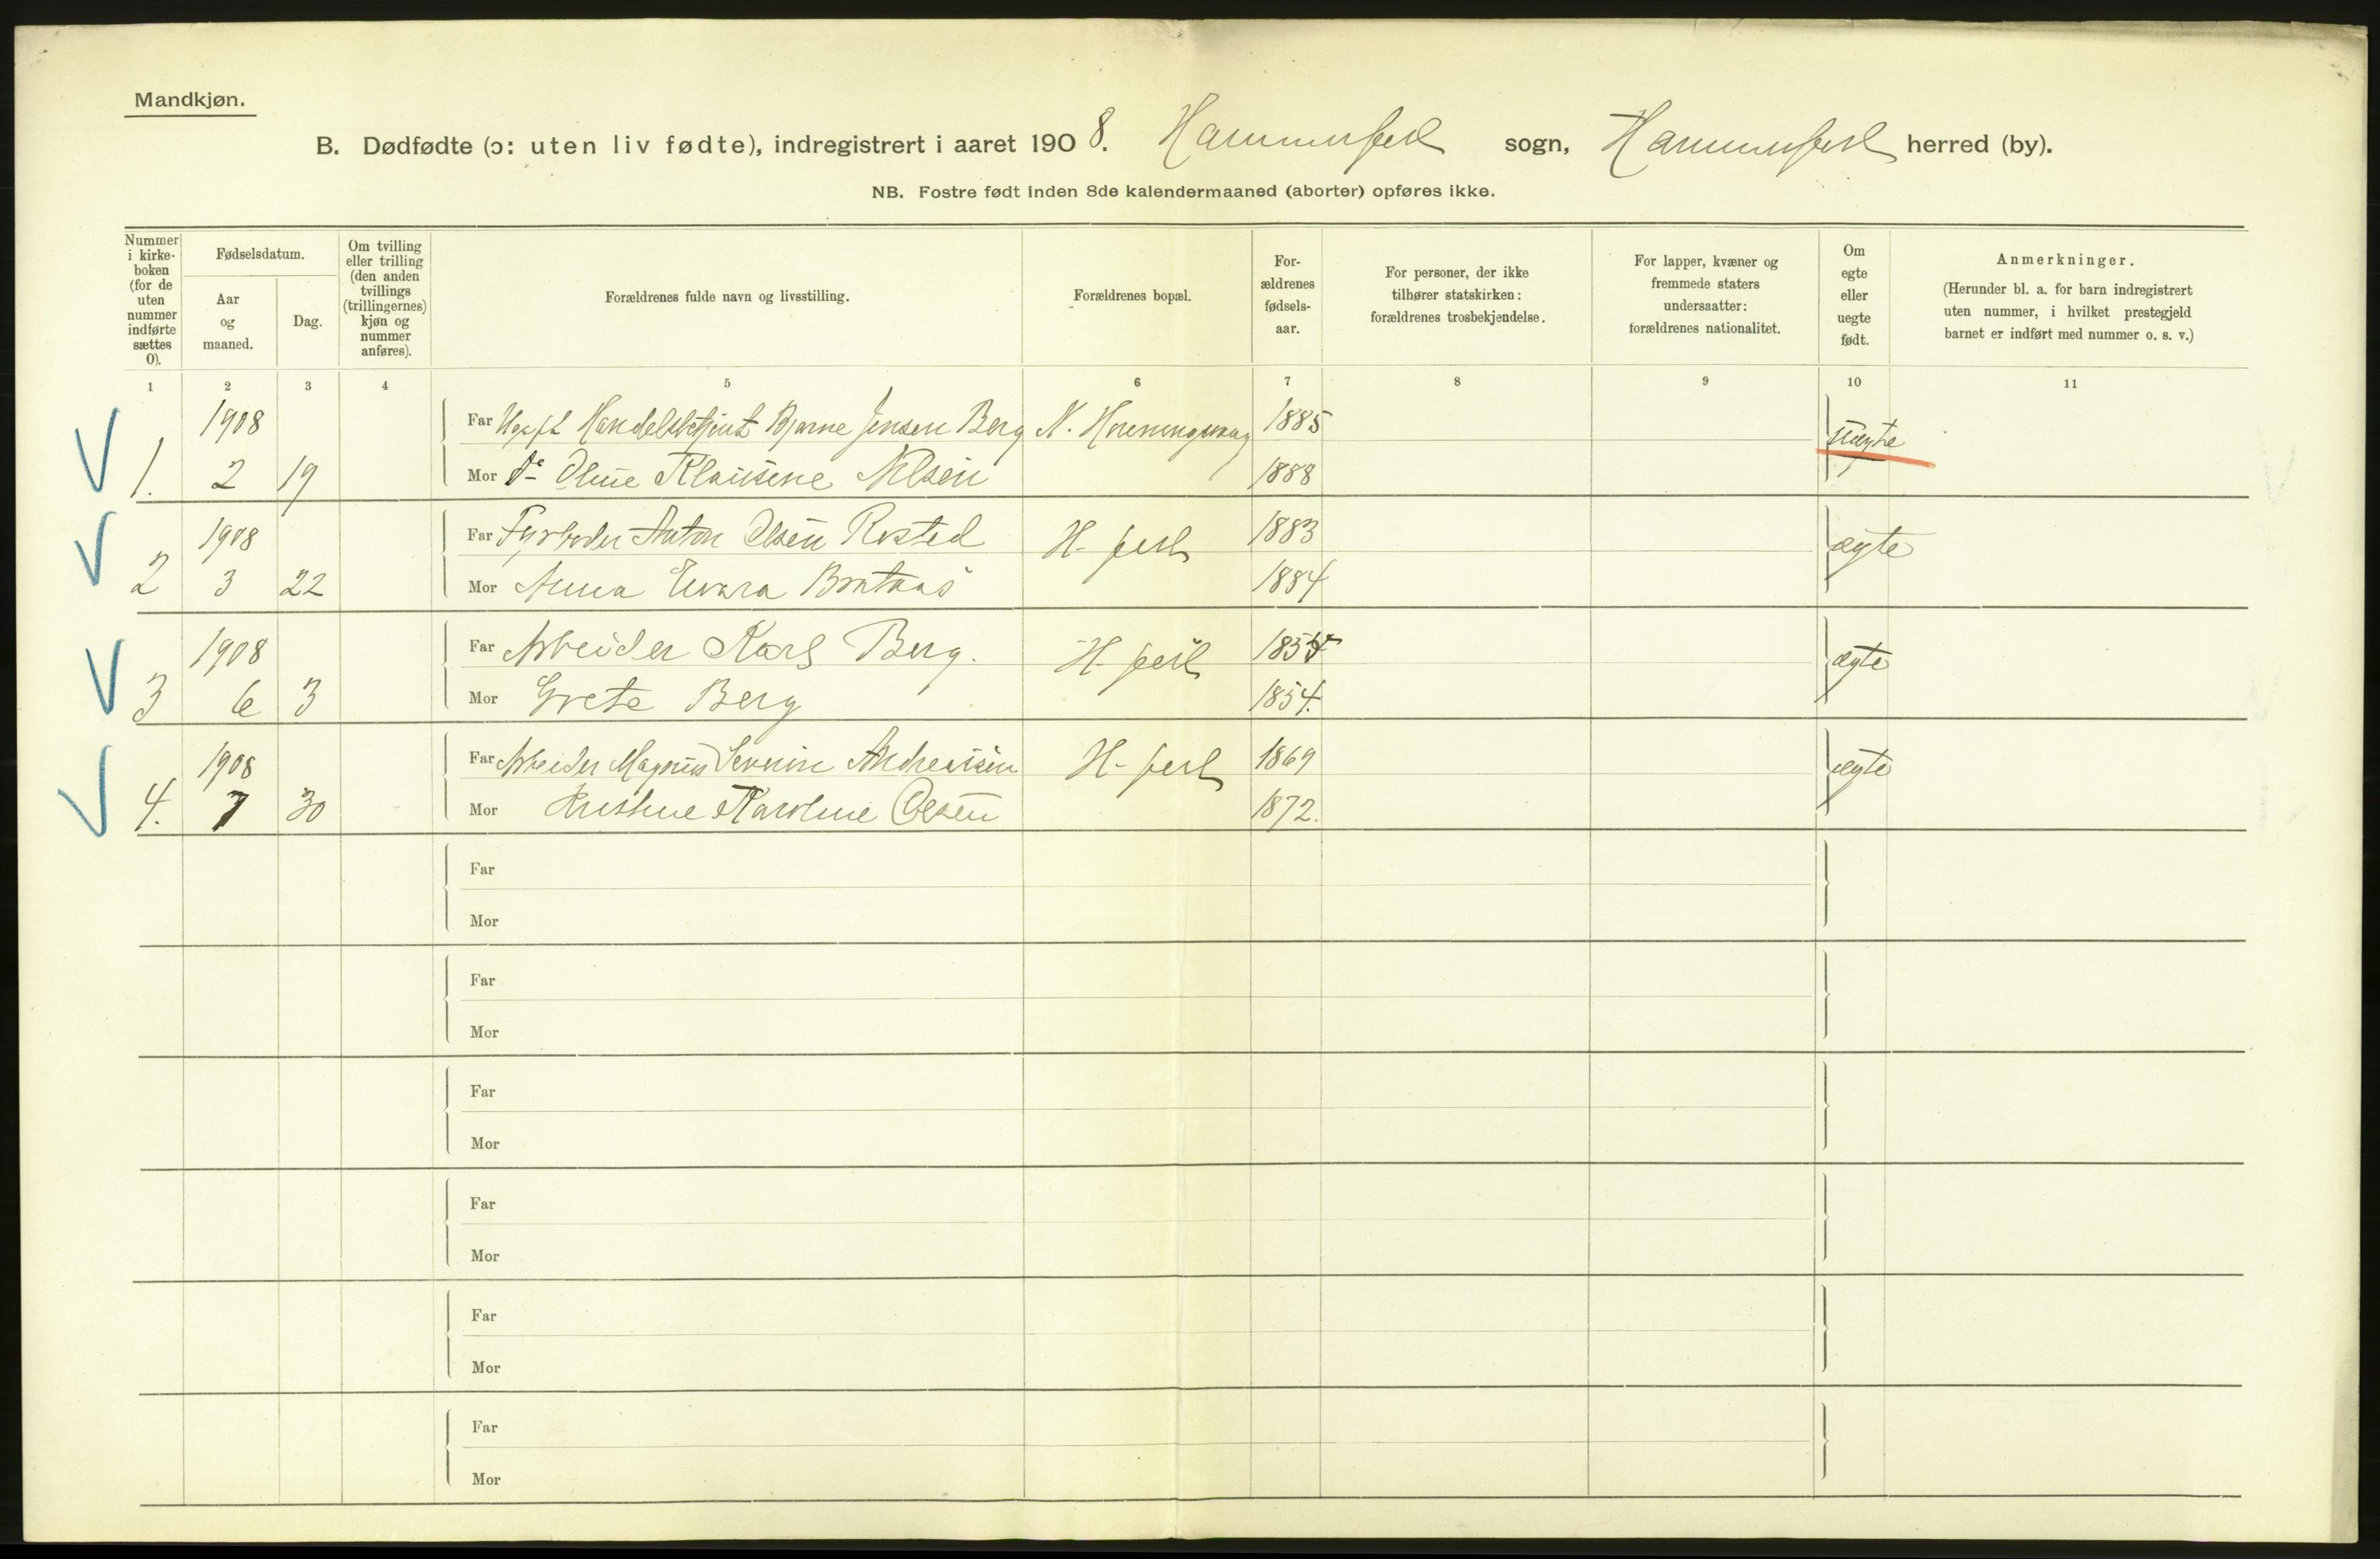 Mandkjøn.
B. Dødfødte (ɔ: uten liv fødte), indregistrert i aaret 1908. Hammerfest sogn, Hammerfest herred (by).
NB. Fostre født inden 8de kalendermaaned (aborter) opføres ikke.
Nummer i kirke-boken (for de uten nummer indførte sættes 0).
Fødselsdatum.
Aar og maaned.
Dag.
Om tvilling eller trilling (den anden tvillings (trillingernes) kjøn og nummer anføres).
Forældrenes fulde navn og livsstilling.
Forældrenes bopæl.
For-ældrenes fødsels-aar.
For personer, der ikke tilhører statskirken: forældrenes trosbekjendelse.
For lapper, kvæner og fremmede staters undersaatter: forældrenes nationalitet.
Om egte eller uegte født.
Anmerkninger.
(Herunder bl. a. for barn indregistrert uten nummer, i hvilket prestegjeld barnet er indført med nummer o. s. v.)
1 2 3 4 5 6 7 8 9 10 11
1908
Far Ugift Handelsbetjent Bjarne Jensen Berg N. Honningsvaag 1885 uægte
1. 2 19 Mor do Oline Klausine Nilsen 1888
1908
Far Fyrbøder Anton Olsen Rosted H-fest 1883 ægte
2 3 22 Mor Anna Evara Brataas 1884
1908
Far Arbeider Karl Berg. H-fest ægte
3 6 3 Mor Grete Berg 1854.
1908
Far Arbeider Magnus Severin Andreassen H-fest 1869 ægte
4. 7 30 Mor Kristine Karoline Olsen 1872.
Far
Mor
Far
Mor
Far
Mor
Far
Mor
Far
Mor
Far
Mor